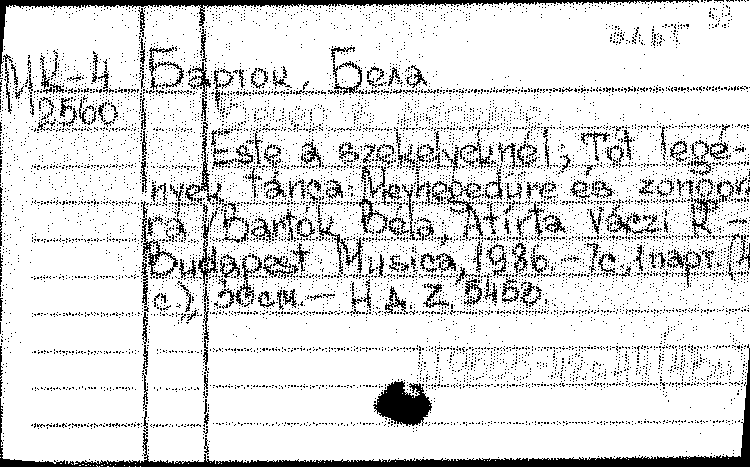 альт 53
МК-4 Барток, Бела
2560
Este a székelyeknél; Tót legé-
nyek tánca: Mélyhegedűre és zongor
ra / Bartók Béla, Átírta Váczi K -
Budapest Musica, 1986. - 7с., 1парт. (4
с.), 30см. - Н.Д. Z. 5453.